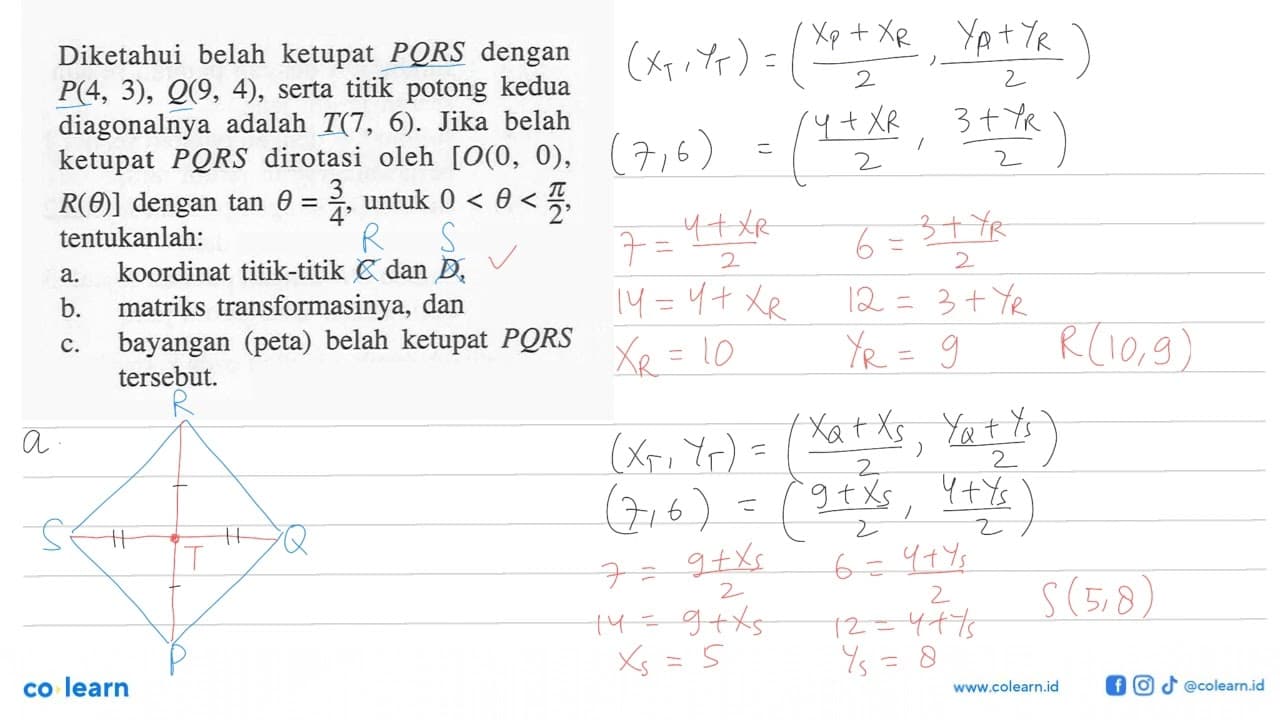 Diketahui belah ketupat PQRS dengan
P(4, 3), Q(9, 4), serta titik potong kedua
diagonalnya adalah T(7, 6). Jika belah
ketupat PQRS dirotasi oleh [O(0, 0),
R(θ)] dengan tan θ = 3/4, untuk 0 < θ < π/2,
tentukanlah:
R S
a. koordinat titik-titik C dan D, ✓
b. matriks transformasinya, dan
c. bayangan (peta) belah ketupat PQRS
tersebut.
a.
R
S
T
Q
P
(x_T, y_T) = ((x_P + x_R)/2, (y_P + y_R)/2)
(7,6) = ((4 + x_R)/2, (3 + y_R)/2)
7 = (4 + x_R)/2 6 = (3 + y_R)/2
14 = 4 + x_R 12 = 3 + y_R
x_R = 10 y_R = 9 R(10,9)
(x_T, y_T) = ((x_Q + x_S)/2, (y_Q + y_S)/2)
(7,6) = ((9 + x_S)/2, (4 + y_S)/2)
7 = (9 + x_S)/2 6 = (4 + y_S)/2
S(5,8)
14 = 9 + x_S 12 = 4 + y_S
x_S = 5 y_S = 8
co learn
www.colearn.id @colearn.id